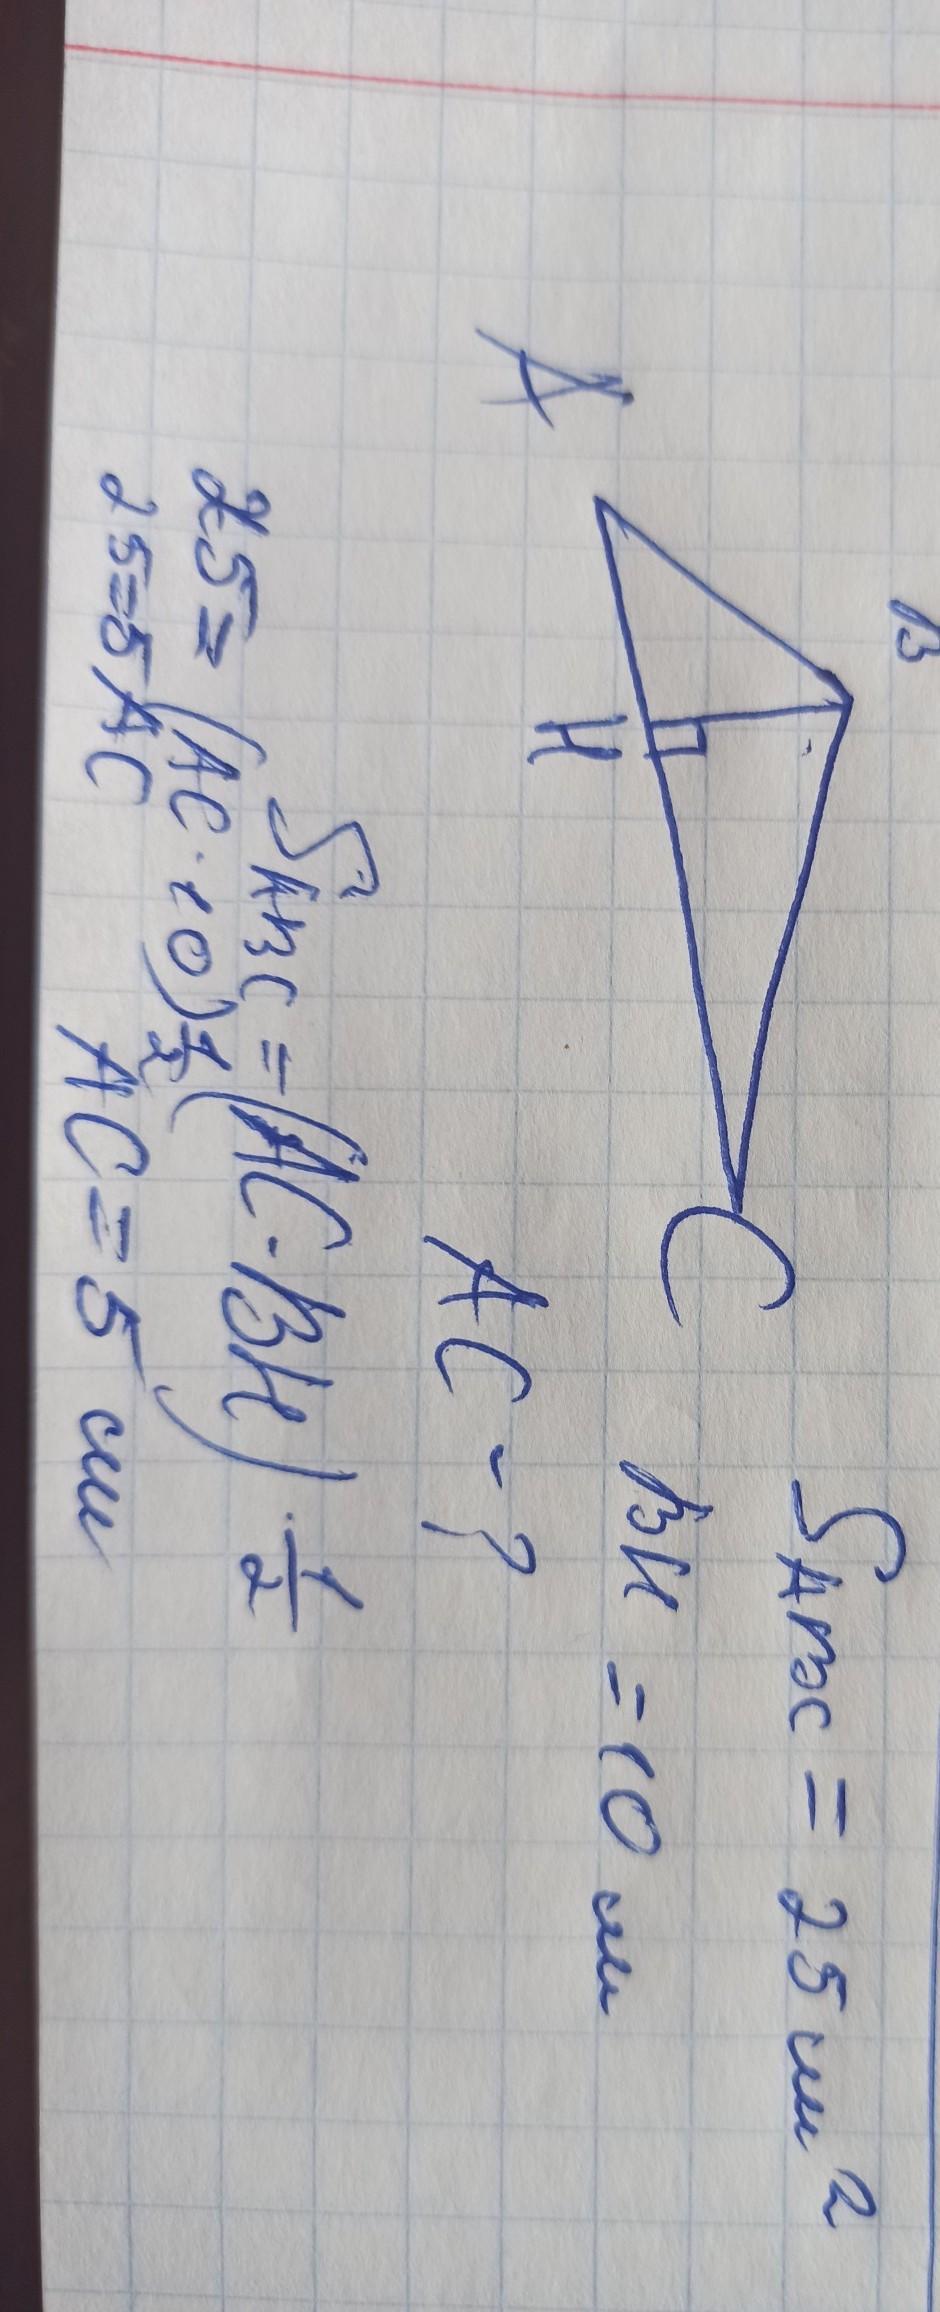 B
S ABC = 25 см²
A
H
C
BH = 10 см
AC - ?
S ABC = (AC · BH) · 1/2
25 = (AC · 10) 1/2
25 = 5 AC AC = 5 см